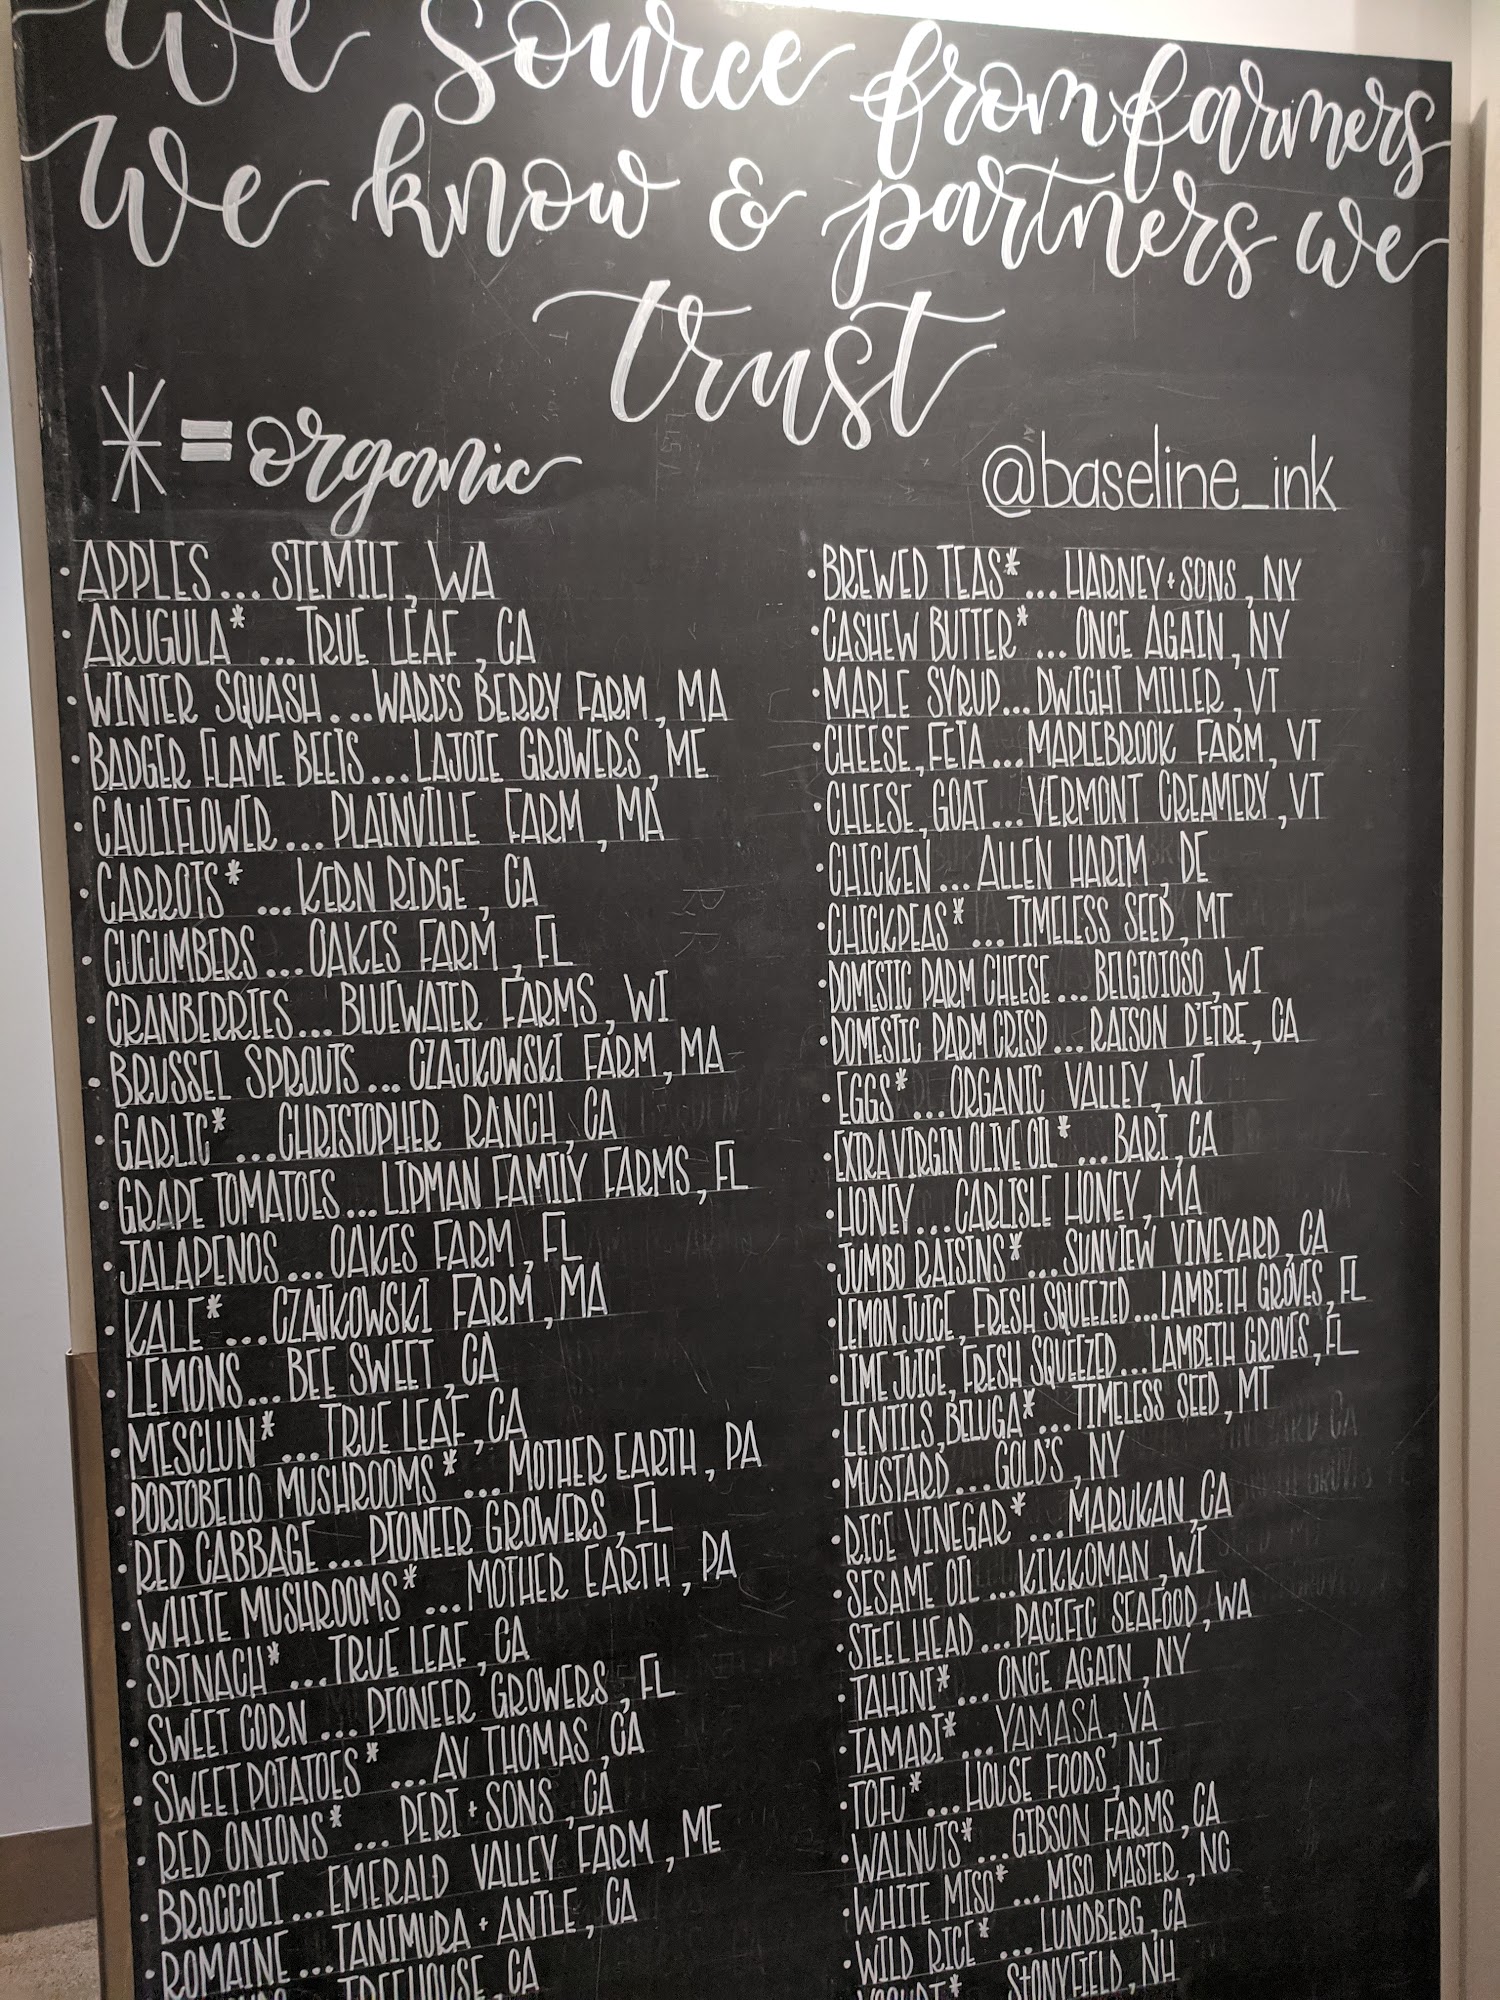 We source from farmers
we know & partners we
trust
* = organic
@baseline_ink
• APPLES... STEMILT, WA
• ARUGULA* ... TRUE LEAF, CA
• WINTER SQUASH... WARD'S BERRY FARM, MA
• BADGER FLAME BEETS... LAJOIE GROWERS, ME
• CAULIFLOWER... PLAINVILLE FARM, MA
• CARROTS* ... KERN RIDGE, CA
• CUCUMBERS... OAKES FARM, FL
• CRANBERRIES... BLUEWATER FARMS, WI
• BRUSSEL SPROUTS... CZAJKOWSKI FARM, MA
• GARLIC* ... CHRISTOPHER RANCH, CA
• GRAPE TOMATOES... LIPMAN FAMILY FARMS, FL
• JALAPENOS... OAKES FARM, FL
• KALE* ... CZAJKOWSKI FARM, MA
• LEMONS... BEE SWEET, CA
• MESCLUN* ... TRUE LEAF, CA
• PORTOBELLO MUSHROOMS* ... MOTHER EARTH, PA
• RED CABBAGE... PIONEER GROWERS, FL
• WHITE MUSHROOMS* ... MOTHER EARTH, PA
• SPINACH* ... TRUE LEAF, CA
• SWEET CORN ... PIONEER GROWERS, FL
• SWEET POTATOES* ... AV THOMAS, CA
• RED ONIONS* ... PERI + SONS, CA
• BROCCOLI... EMERALD VALLEY FARM, ME
• ROMAINE... TANIMURA + ANTLE, CA
TREEHOUSE, CA
• BREWED TEAS* ... HARNEY + SONS, NY
• CASHEW BUTTER* ... ONCE AGAIN, NY
• MAPLE SYRUP... DWIGHT MILLER, VT
• CHEESE, FETA... MAPLEBROOK FARM, VT
• CHEESE, GOAT... VERMONT CREAMERY, VT
• CHICKEN... ALLEN HARIM, DE
• CHICKPEAS* ... TIMELESS SEED, MT
• DOMESTIC PARM CHEESE... BELGIOIOSO, WI
• DOMESTIC PARM CRISP... RAISON D'ETRE, CA
• EGGS* ... ORGANIC VALLEY, WI
• EXTRA VIRGIN OLIVE OIL* ... BARI, CA
• HONEY... CARLISLE HONEY, MA
• JUMBO RAISINS* ... SUNVIEW VINEYARD, CA
• LEMON JUICE, FRESH SQUEEZED... LAMBETH GROVES, FL
• LIME JUICE, FRESH SQUEEZED... LAMBETH GROVES, FL
• LENTILS, BELUGA* ... TIMELESS SEED, MT
• MUSTARD... GOLD'S, NY
• RICE VINEGAR* ... MARUKAN, CA
• SESAME OIL... KIKKOMAN, WI
• STEELHEAD... PACIFIC SEAFOOD, WA
• TAHINI* ... ONCE AGAIN, NY
• TAMARI* ... YAMASA, VA
• TOFU* ... HOUSE FOODS, NJ
• WALNUTS* ... GIBSON FARMS, CA
• WHITE MISO* ... MISO MASTER, NC
• WILD RICE* ... LUNDBERG, CA
YOGURT* STONYFIELD, NH